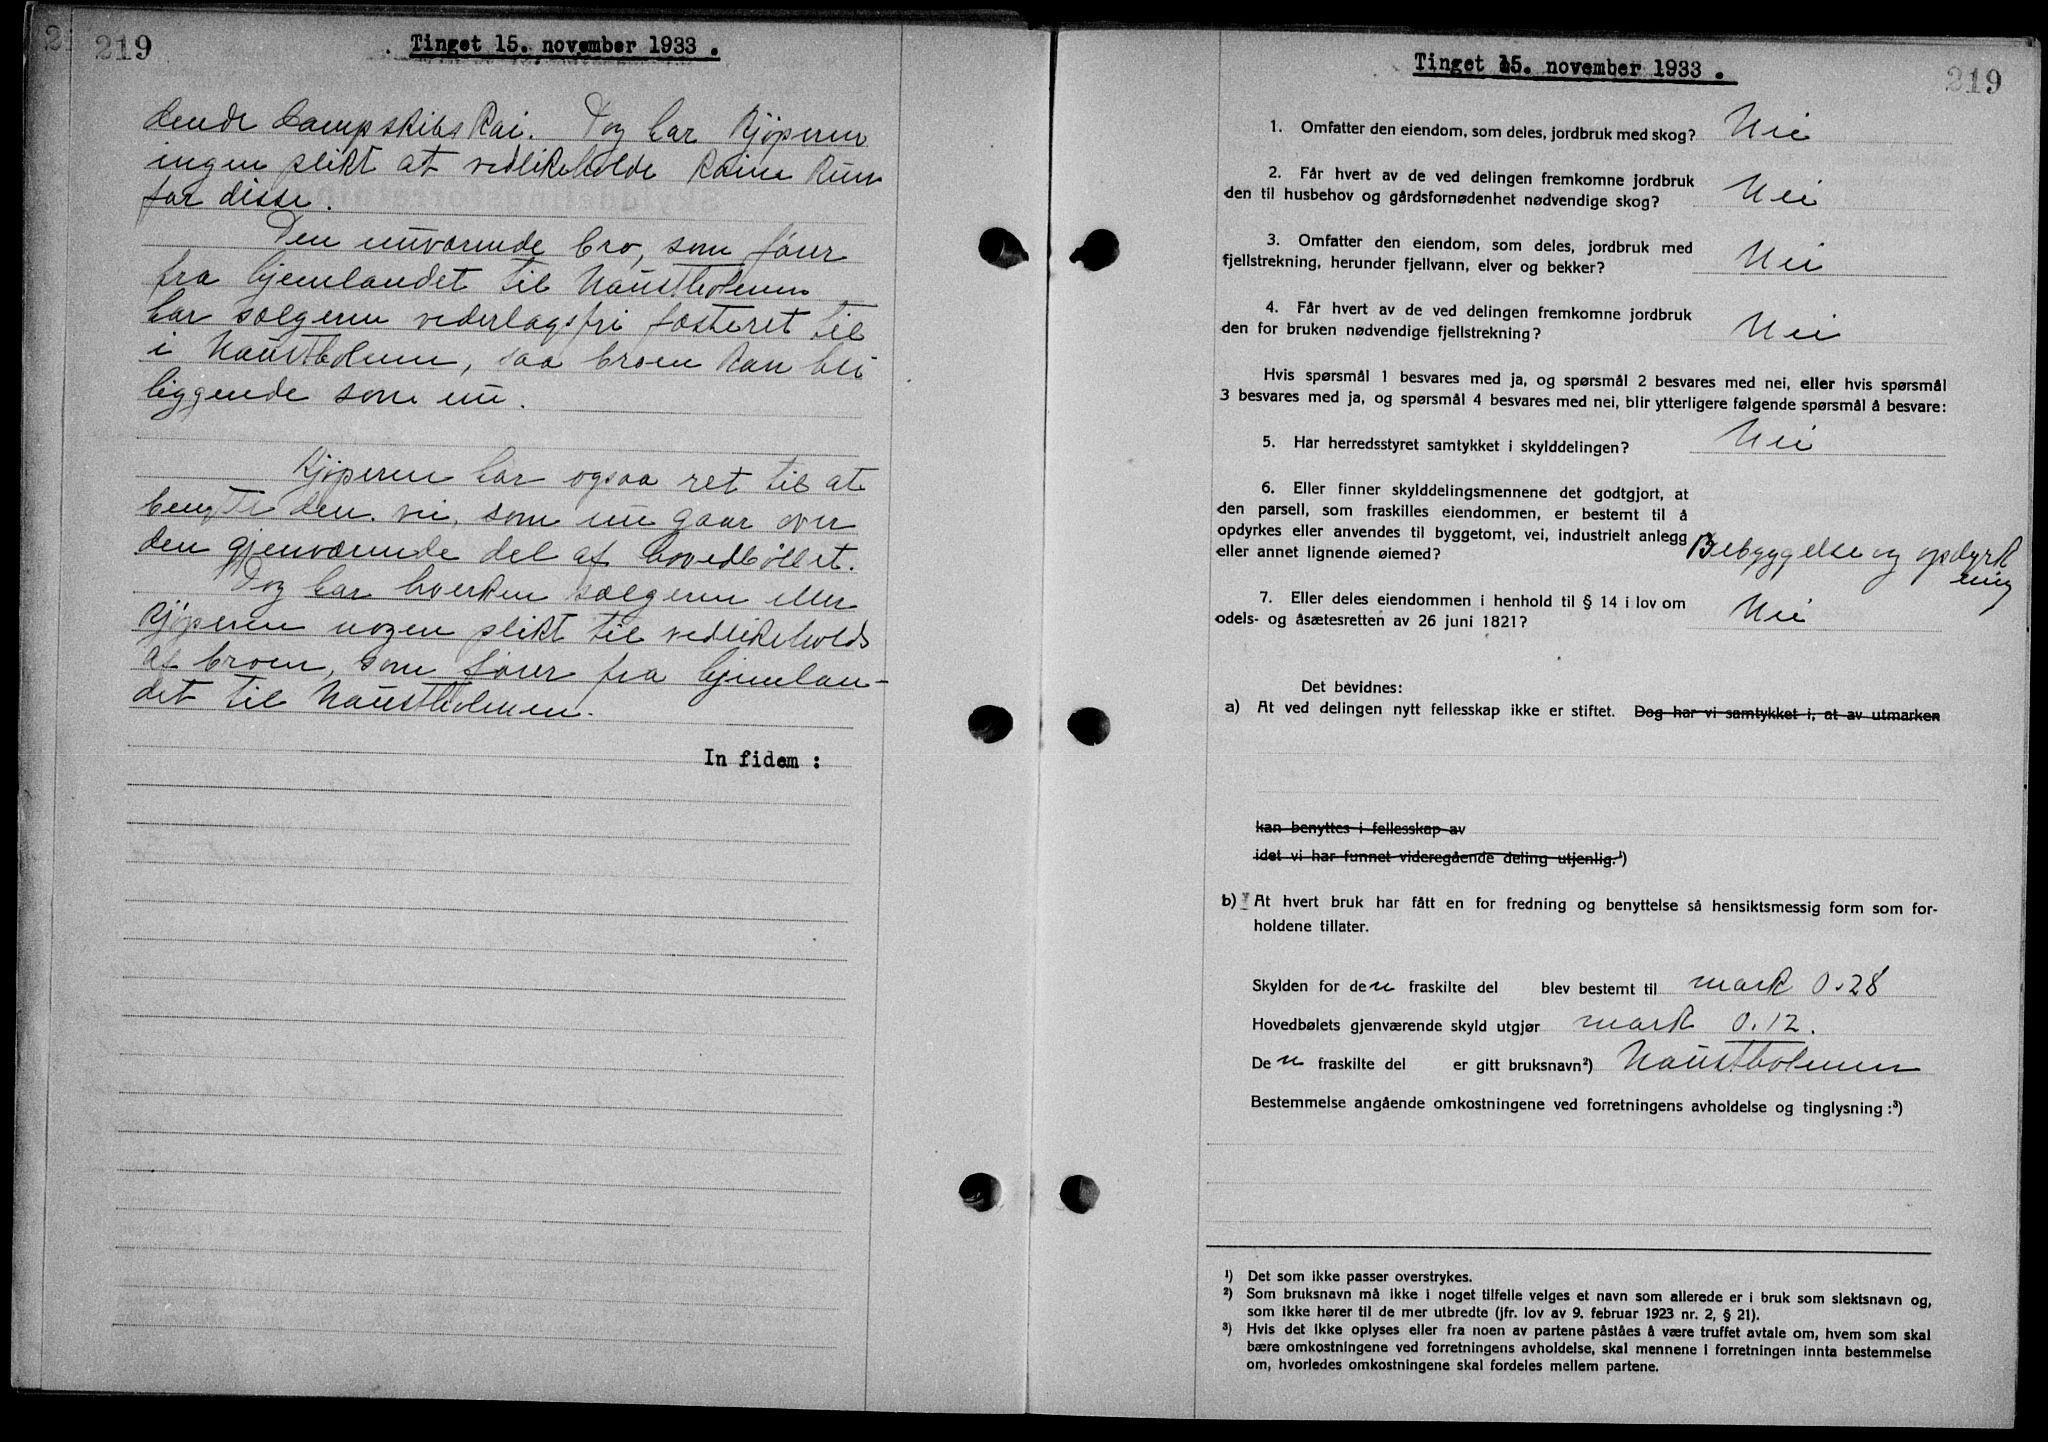 219
Tinget 15. november 1933.
dende Dampskibs Kai. Dog har Kjöperen
ingen plikt at vedlikeholde Kaien Kun
for disse.
Den nuværende bro, som förer
fra hjemlandet til Naustholmen
har sælgeren vederlagsfri fæsteret til
i Naustholmen, saa broen kan bli
liggende som nu.
Kjöperen har ogsaa ret til at
benytte den vei, som nu gaar over
den gjenværende del af hovedböllet.
Dog har hverken sælgeren eller
Kjöperen nogen plikt til vedlikeholds
af broen, som förer fra hjemlan-
det til Naustholmen.
In fidem :
Tinget 15. november 1933.
219
1. Omfatter den eiendom, som deles, jordbruk med skog? Nei
2. Får hvert av de ved delingen fremkomne jordbruk
den til husbehov og gårdsfornødenhet nødvendige skog? Nei
3. Omfatter den eiendom, som deles, jordbruk med
fjellstrekning, herunder fjellvann, elver og bekker? Nei
4. Får hvert av de ved delingen fremkomne jordbruk
den for bruken nødvendige fjellstrekning? Nei
Hvis spørsmål 1 besvares med ja, og spørsmål 2 besvares med nei, eller hvis spørsmål
3 besvares med ja, og spørsmål 4 besvares med nei, blir ytterligere følgende spørsmål å besvare:
5. Har herredsstyret samtykket i skylddelingen? Nei
6. Eller finner skylddelingsmennene det godtgjort, at
den parsell, som fraskilles eiendommen, er bestemt til å
opdyrkes eller anvendes til byggetomt, vei, industrielt anlegg
eller annet lignende øiemed? Bebyggelse og opdyrk
ning
7. Eller deles eiendommen i henhold til § 14 i lov om
odels- og åsætesretten av 26 juni 1821? Nei
Det bevidnes:
a) At ved delingen nytt fellesskap ikke er stiftet. Dog har vi samtykket i, at av utmarken
kan benyttes i fellesskap av
idet vi har funnet videregående deling utjenlig.¹)
b) At hvert bruk har fått en for fredning og benyttelse så hensiktsmessig form som for-
holdene tillater.
Skylden for den fraskilte del blev bestemt til mark 0.28
Hovedbølets gjenværende skyld utgjør mark 0.12.
Den fraskilte del er gitt bruksnavn²) Naustholmen
Bestemmelse angående omkostningene ved forretningens avholdelse og tinglysning:³)
¹) Det som ikke passer overstrykes.
²) Som bruksnavn må ikke i noget tilfelle velges et navn som allerede er i bruk som slektsnavn og,
som ikke hører til de mer utbredte (jfr. lov av 9. februar 1923 nr. 2, § 21).
³) Hvis det ikke oplyses eller fra noen av partene påståes å være truffet avtale om, hvem som skal
bære omkostningene ved forretningens avholdelse, skal mennene i forretningen innta bestemmelse
om, hvorledes omkostningene skal fordeles mellem partene.